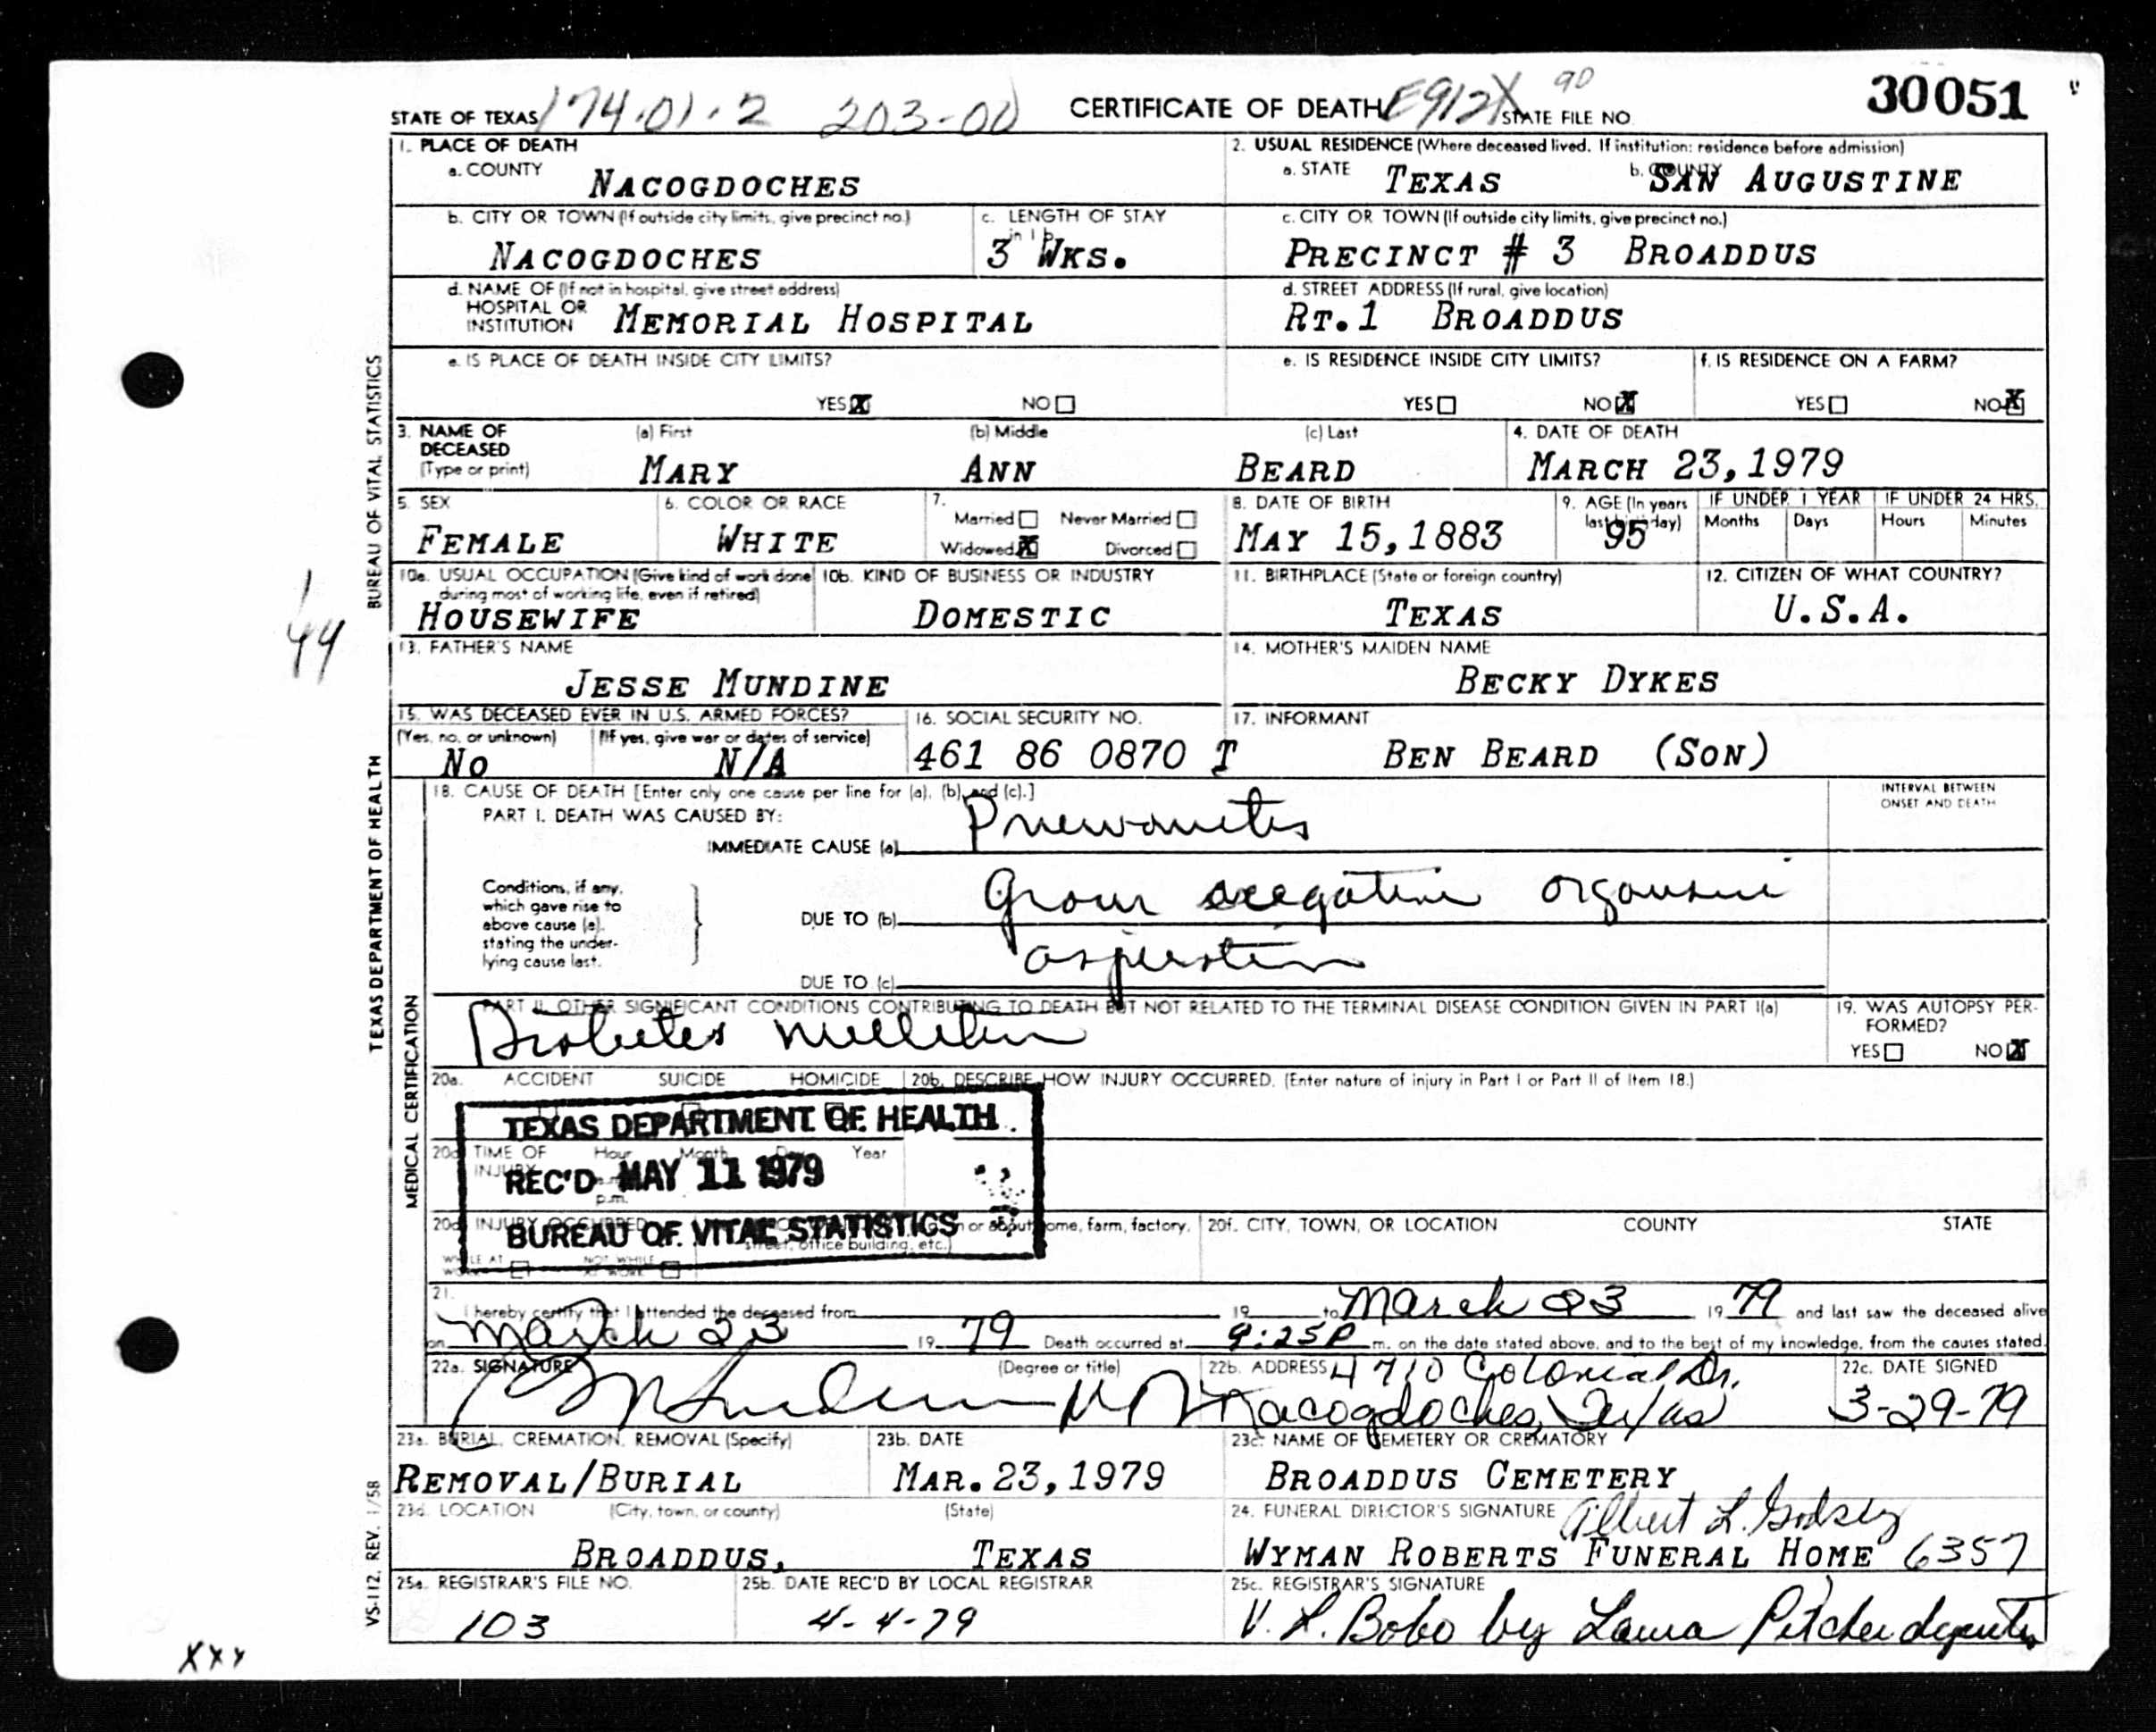 STATE OF TEXAS 174.01.2 203-00 CERTIFICATE OF DEATH E912X 90 STATE FILE NO. 30051
1. PLACE OF DEATH
a. COUNTY NACOGDOCHES
2. USUAL RESIDENCE (Where deceased lived. If institution: residence before admission)
a. STATE TEXAS b. COUNTY SAN AUGUSTINE
b. CITY OR TOWN (If outside city limits, give precinct no.) NACOGDOCHES
c. LENGTH OF STAY in 1 b. 3 WKS.
c. CITY OR TOWN (If outside city limits, give precinct no.) PRECINCT # 3 BROADDUS
d. NAME OF (If not in hospital, give street address) HOSPITAL OR INSTITUTION MEMORIAL HOSPITAL
d. STREET ADDRESS (If rural, give location) RT.1 BROADDUS
e. IS PLACE OF DEATH INSIDE CITY LIMITS? YES X NO
e. IS RESIDENCE INSIDE CITY LIMITS? YES NO X
f. IS RESIDENCE ON A FARM? YES NO X
3. NAME OF DECEASED (Type or print)
(a) First MARY (b) Middle ANN (c) Last BEARD
4. DATE OF DEATH MARCH 23,1979
5. SEX FEMALE
6. COLOR OR RACE WHITE
7. Married Never Married Widowed X Divorced
8. DATE OF BIRTH MAY 15,1883
9. AGE (In years last birthday) 95
IF UNDER 1 YEAR Months Days
IF UNDER 24 HRS. Hours Minutes
10a. USUAL OCCUPATION (Give kind of work done during most of working life, even if retired) HOUSEWIFE
10b. KIND OF BUSINESS OR INDUSTRY DOMESTIC
11. BIRTHPLACE (State or foreign country) TEXAS
12. CITIZEN OF WHAT COUNTRY? U.S.A.
13. FATHER'S NAME JESSE MUNDINE
14. MOTHER'S MAIDEN NAME BECKY DYKES
15. WAS DECEASED EVER IN U.S. ARMED FORCES?
(Yes, no, or unknown) NO (If yes, give war or dates of service) N/A
16. SOCIAL SECURITY NO. 461 86 0870 T
17. INFORMANT BEN BEARD (SON)
18. CAUSE OF DEATH [Enter only one cause per line for (a), (b), and (c).]
INTERVAL BETWEEN ONSET AND DEATH
PART I. DEATH WAS CAUSED BY:
IMMEDIATE CAUSE (a) Pneumonitis
Conditions, if any, which gave rise to above cause (a), stating the underlying cause last.
DUE TO (b) Gram negative organism
DUE TO (c) aspiration
PART II. OTHER SIGNIFICANT CONDITIONS CONTRIBUTING TO DEATH BUT NOT RELATED TO THE TERMINAL DISEASE CONDITION GIVEN IN PART I(a)
Diabetes mellitus
19. WAS AUTOPSY PERFORMED? YES NO X
20a. ACCIDENT SUICIDE HOMICIDE
20b. DESCRIBE HOW INJURY OCCURRED. (Enter nature of injury in Part I or Part II of Item 18.)
TEXAS DEPARTMENT OF HEALTH
REC'D MAY 11 1979
BUREAU OF VITAL STATISTICS
TIME OF INJURY Hour Month Year
p.m.
INJURY OCCURRED
home, farm, factory, street, office building, etc.)
20f. CITY, TOWN, OR LOCATION COUNTY STATE
21. I hereby certify that I attended the deceased from 19 to March 23 19 79 and last saw the deceased alive
on March 23 19 79 Death occurred at 9:25P m. on the date stated above, and to the best of my knowledge, from the causes stated.
22a. SIGNATURE (Degree or title)
22b. ADDRESS 4710 Colonial Dr. Nacogdoches, Texas
22c. DATE SIGNED 3-29-79
23a. BURIAL, CREMATION, REMOVAL (Specify) REMOVAL/BURIAL
23b. DATE MAR.23,1979
23c. NAME OF CEMETERY OR CREMATORY BROADDUS CEMETERY
23d. LOCATION (City, town, or county) (State) BROADDUS, TEXAS
24. FUNERAL DIRECTOR'S SIGNATURE Albert L. Godsey
WYMAN ROBERTS FUNERAL HOME 6357
25a. REGISTRAR'S FILE NO. 103
25b. DATE REC'D BY LOCAL REGISTRAR 4-4-79
25c. REGISTRAR'S SIGNATURE V. L. Bobo by Laura Pitcher deputy
BUREAU OF VITAL STATISTICS
TEXAS DEPARTMENT OF HEALTH
MEDICAL CERTIFICATION
VS-112, REV. 1/58
44
XXX